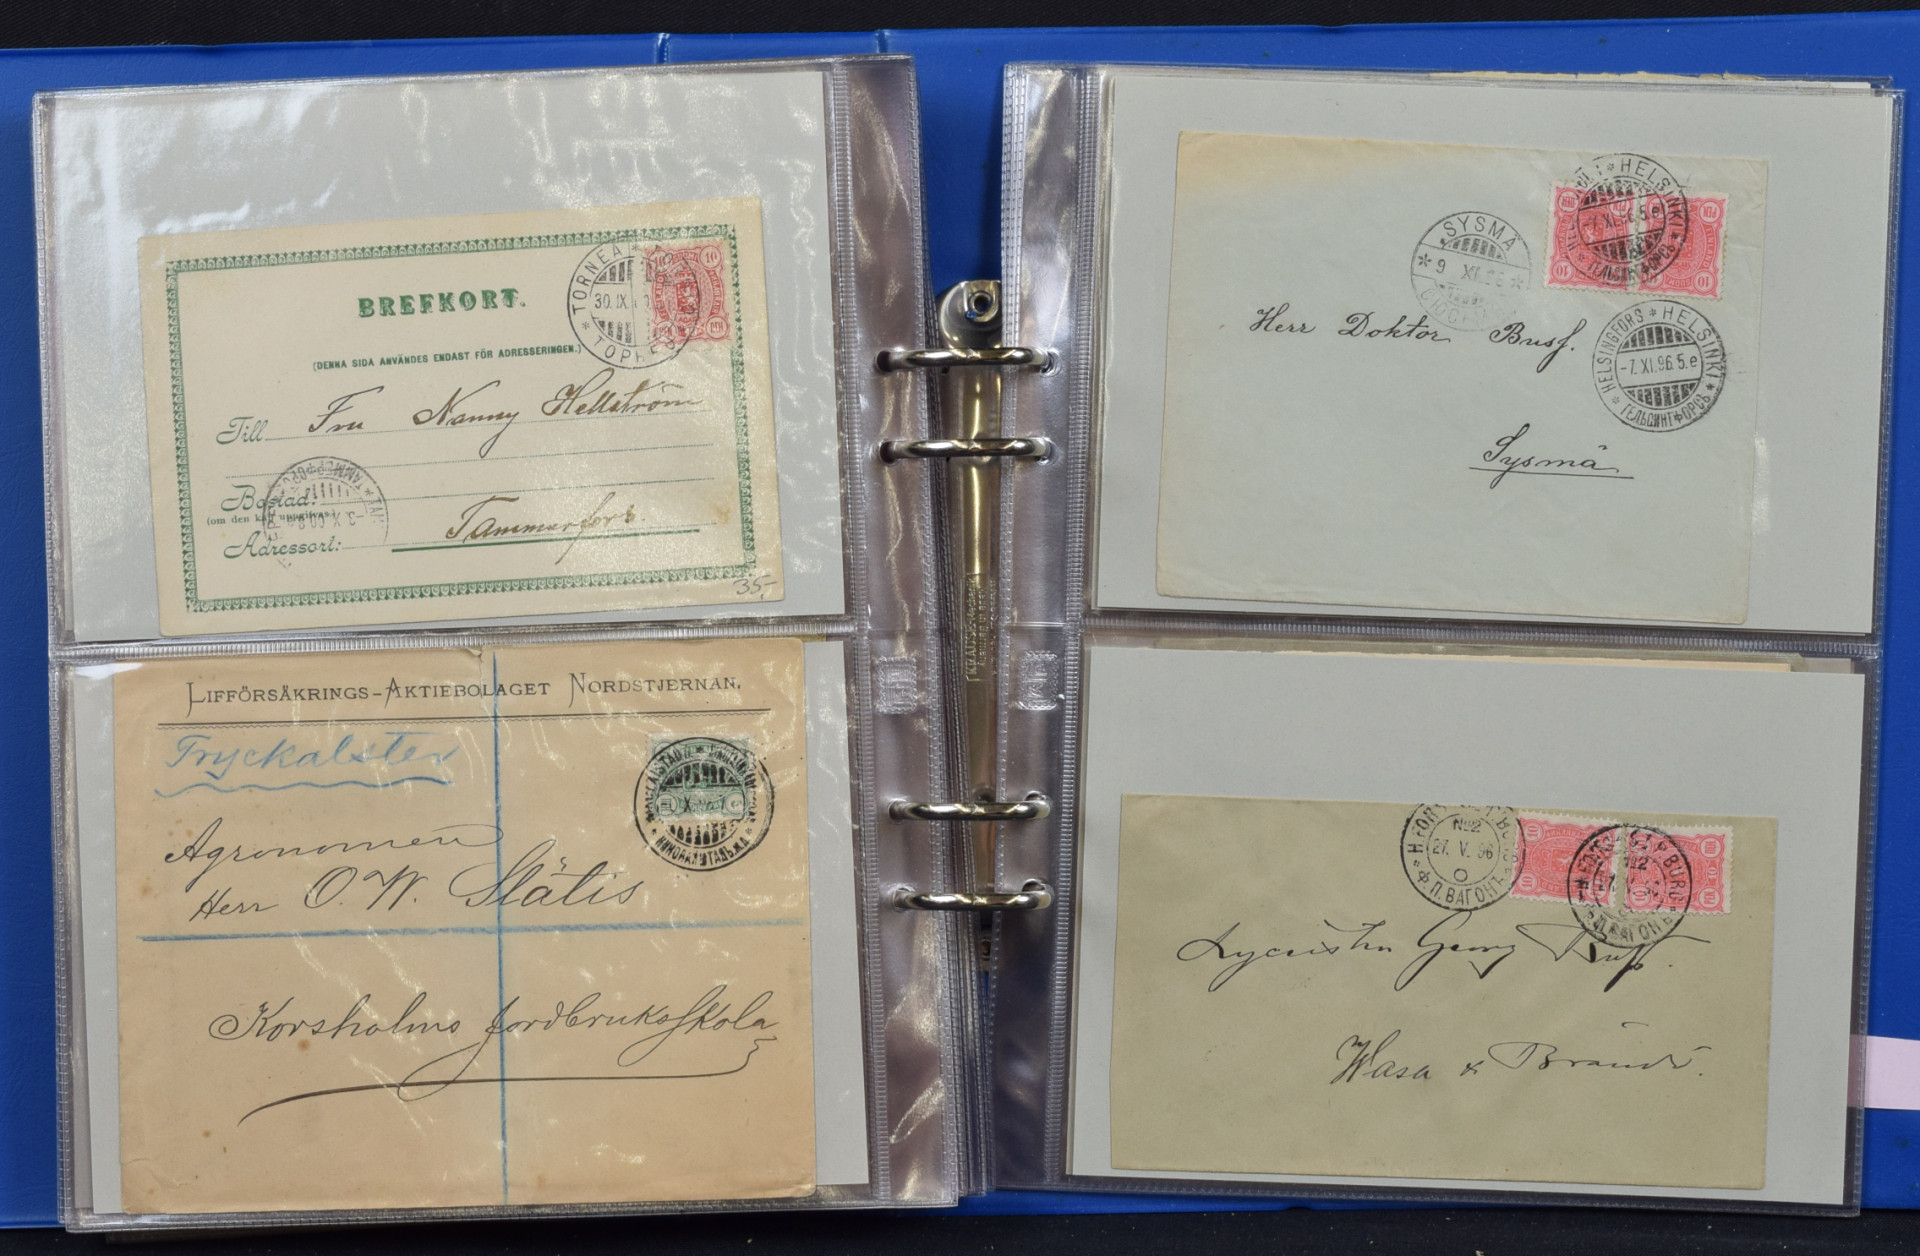 BREFKORT.
(DENNA SIDA ANVÄNDES ENDAST FÖR ADRESSERINGEN.)
TORNEÅ
30.IX.
10
Till Fru Nanny Hellström
Bostad:
(om den kan uppgifvas.)
Adressort: Tammerfors.
-3.X.00.
35,-
LIFFÖRSÄKRINGS-AKTIEBOLAGET NORDSTJERNAN.
Tryckalster
Agronomen
Herr O. W. Slätis
Korsholms Jordbruksskola
5
HELSINKI
10
SYSMÄ
9 XI.96
HELSINGFORS * HELSINKI
-7.XI.96.5.e
ГЕЛЬСИНГФОРСЪ
Herr Doktor Bus
Sysmä
H:FORS
№2
27. V. 96
П.ВАГОНЪ
10
Georg
Wasa & Brändö.